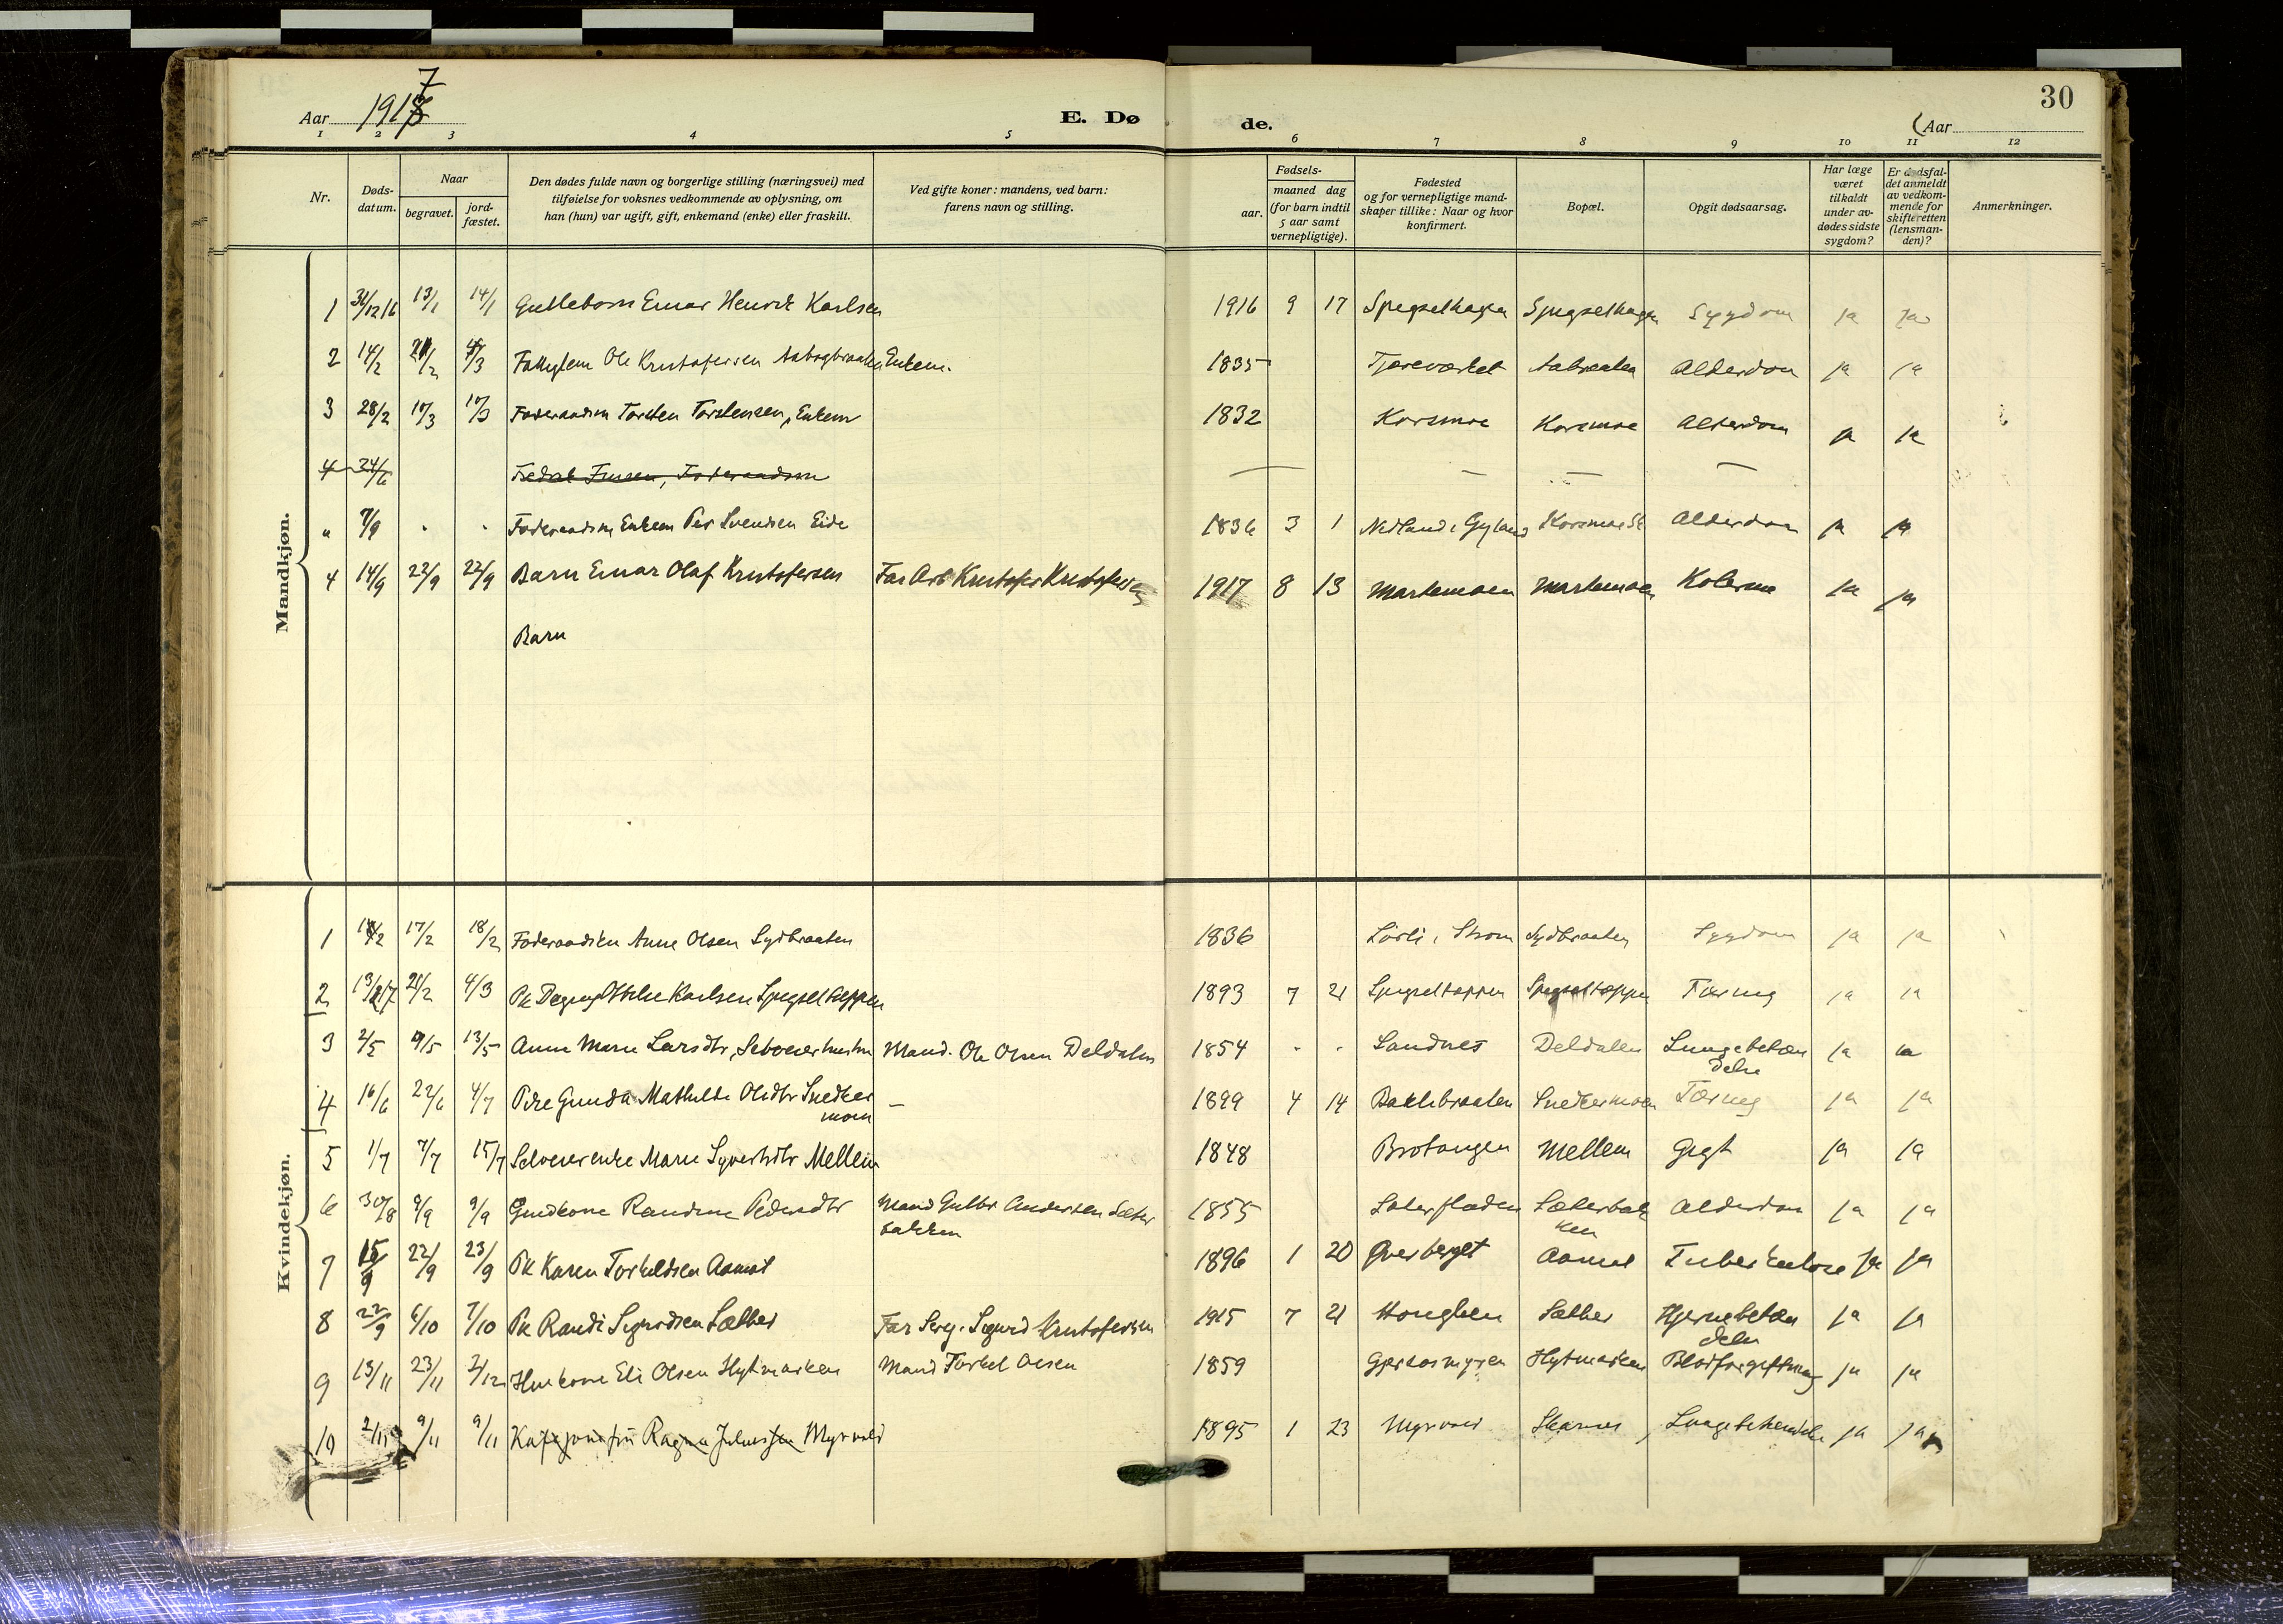 Aar 1917
E. Dø
de.
30
Aar
1 2 3 4 5 6 7 8 9 10 11 12
Nr.
Døds-datum.
Naar
begravet.
jord-fæstet.
Den dødes fulde navn og borgerlige stilling (næringsvei) med
tilføielse for voksnes vedkommende av oplysning, om
han (hun) var ugift, gift, enkemand (enke) eller fraskilt.
Ved gifte koner: mandens, ved barn:
farens navn og stilling.
Fødsels-
aar.
maaned dag
(for barn indtil
5 aar samt
vernepligtige).
Fødested
og for vernepligtige mand-
skaper tillike: Naar og hvor
konfirmert.
Bopæl.
Opgit dødsaarsag.
Har læge
været
tilkaldt
under av-
dødes sidste
sygdom?
Er dødsfal-
det anmeldt
av vedkom-
mende for
skifteretten
(lensman-
den)?
Anmerkninger.
Mandkjøn.
1 31/12 16 13/1 14/1 Guttebarn Einar Henrik Karlsen 1916 9 17 Spegselhagen Spegselhagen Sygdom ja ja
2 14/2 /2 /3 Fattiglem Ole Kristofersen Aabogbraaten Enkem. 1835 Tjæreverket Aabraaten Alderdom ja ja
3 28/2 10/3 10/3 Føderaadsm Torsten Torstensen, Enkem 1832 Korsmoe Korsmoe Alderdom ja ja
4 24/6 Fredrik Føderaadsm — — — —
" 7/9 . . Føderaadsm Enkem Per Svendsen Eide 1836 3 1 Nedland i Gyland Korsmoe Alderdom ja ja
4 14/9 22/9 22/9 Barn Einar Olaf Kristofersen Far Arb Kristofer Kristofersen 1917 8 13 Martemoen Martemoen Kolerine ja ja
Barn
Kvindekjøn.
1 /2 17/2 18/2 Føderaadsken Anne Olsen Sydbraaten 1836 Lørli i Strøm Sydbraaten Sygdom ja ja
2 13/2 17 21/2 4/3 Pk Dagny Karlsen Spegseltoppen 1893 7 21 Spegseltoppen Spegseltoppen Tæring ja ja
3 2/5 9/5 13/5 Anne Marie Larsdtr, Selveierhustru Mand. Ole Olsen Deldalen 1854 . . Sandnes Deldalen Lungebetæn
delse ja ja
4 16/6 22/6 4/7 Pike Gunda Mathilde Olsdtr Snedker
moen — 1899 4 14 Baklibraaten Snedkermoen Tæring ja ja
5 1/7 7/7 15/7 Selveierenke Marie Syvertsdtr Mellem 1848 Brotangen Mellem Gigt ja ja
6 30/8 9/9 9/9 Gaardkone Randine Pedersdtr Mand Gulbr Andersen Sæter
bakken 1855 Sæterfladen Sæterbak
ken Alderdom ja ja
7 15/9 22/9 23/9 Pk Karen Torkildsen Aamot 1896 1 20 Overberget Aamot Tuberkulose ja ja
8 22/9 6/10 7/10 Pk Randi Sigurdsen Sæther Far Serg. Sigurd Kristofersen 1915 7 21 Sæther Hjernebetæn
delse ja ja
9 13/11 23/11 2/12 Huskone Eli Olsen Hytmarken Mand Torkel Olsen 1859 Gjersosmyren Hytmarken Blodforgiftning ja ja
10 2/11 9/11 9/11 Ragna Juliussen Myrvold 1895 1 23 Myrvold Skarnes Lungebetændelse ja ja